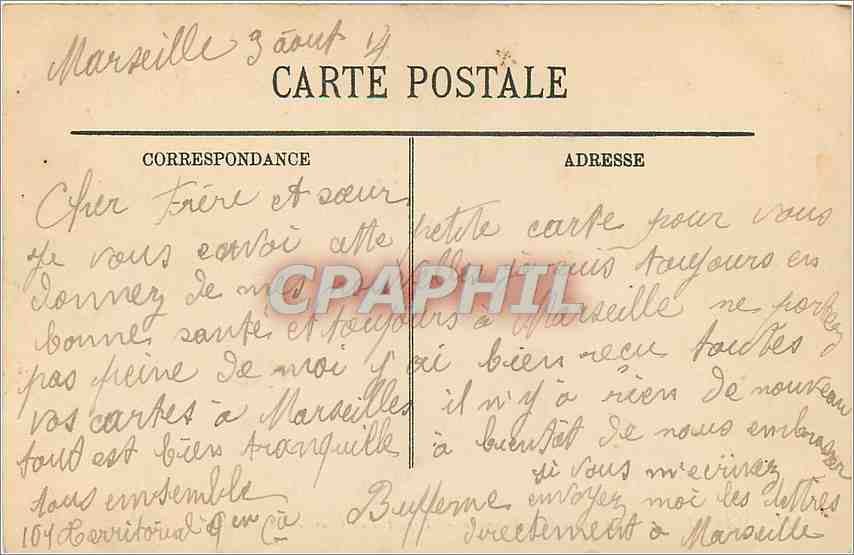 Marseille 3 août 14
CARTE POSTALE
CORRESPONDANCE
ADRESSE
Cher Frère et sœur
je vous envoi cette petite carte pour vous
donnez de mes nouvelles je suis toujours en
bonne santé et toujours à Marseille ne portez
pas peine de moi j'ai bien reçu toutes
vos cartes à Marseilles il n'y a rien de nouveau
tout est bien tranquille à bientôt de nous embrasser
tous ensemble
si vous m'ecrivez
envoyez moi les lettres
directement à Marseille
104 Territorial 9em Cie
CPAPHIL